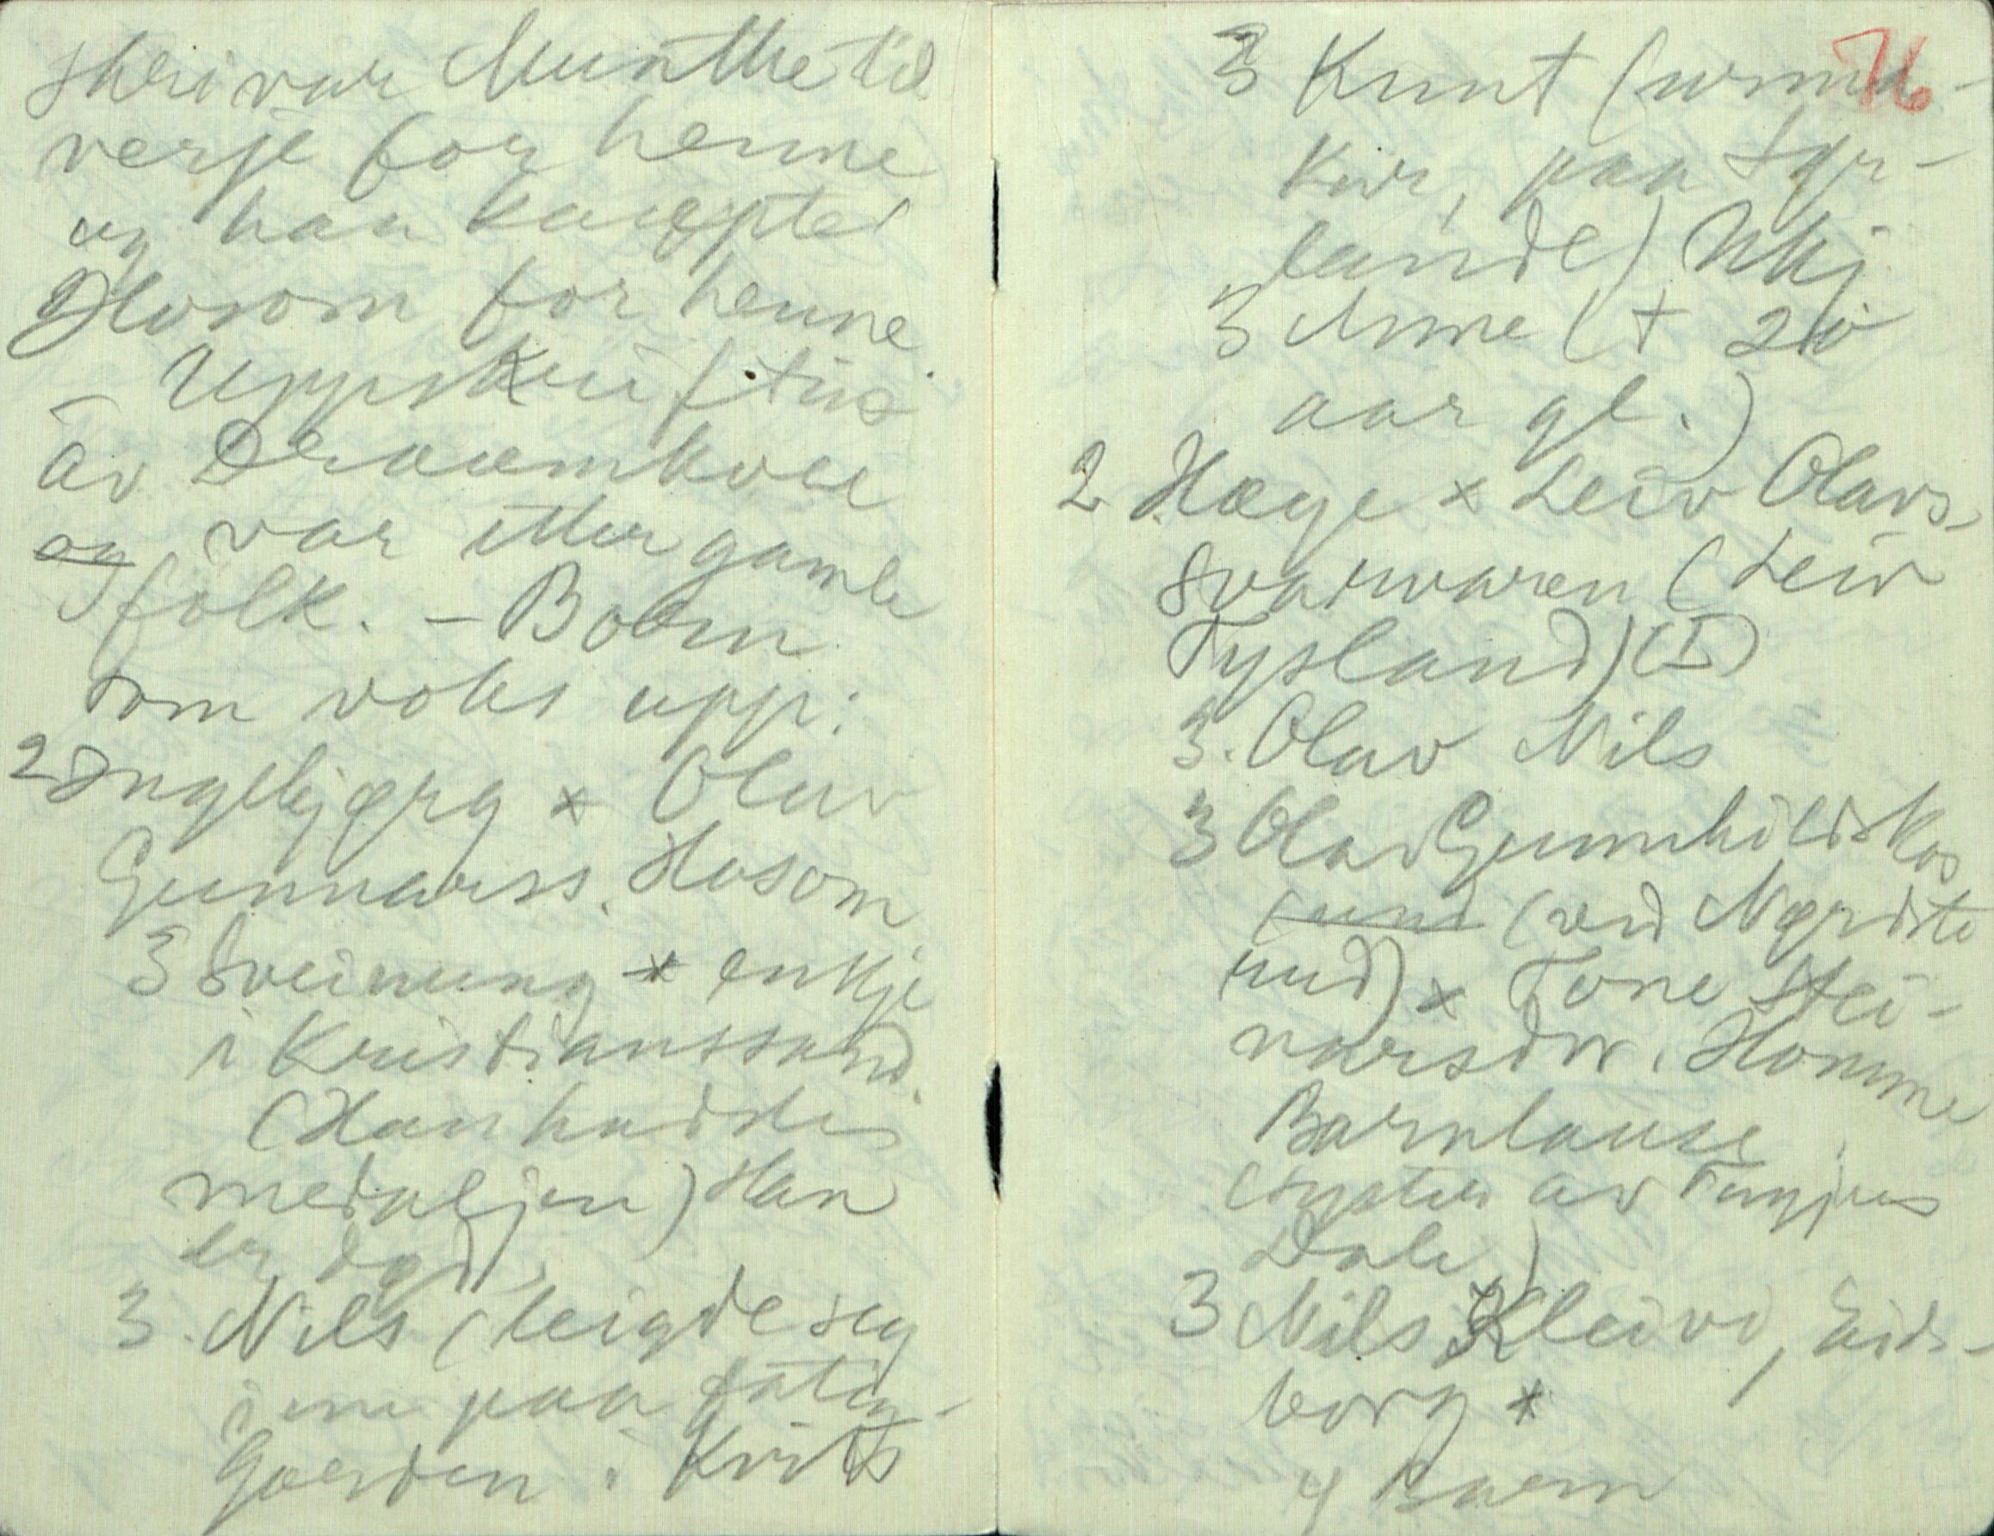 skrivar Munthe til
verje for henne
og han kaupte
Hosom for henne
- Uppskrifti
av Draumkvæe
og var etter gamle
folk. – Boen
som voks upp:
2 Ingebjørg x Olav
Gunnarss. Hosom
3 Sveinung x enkje
i Kristianssand.
(Han hadde
medaljen) Han
er død.
3. Nils (leigde seg
inn paa fatig-
goarden i Kvits
76
3 Knut (urma-
kar, paa Sør-
lande) Ukj
3 Anne (+ 20
aar gl.)
2 Hæge x Leiv Olavs-
Svarvaren (Leiv
Tysland) (I)
3. Olav Nils
3 Olav Gunnhildskos
(ved Nørdste
rud) x Tone Stei-
narsdtr. Homme
Barnlause
(syster av Tarjeis
Dale)
3 Nils Kleivi, Eids-
borg x
4 Boen